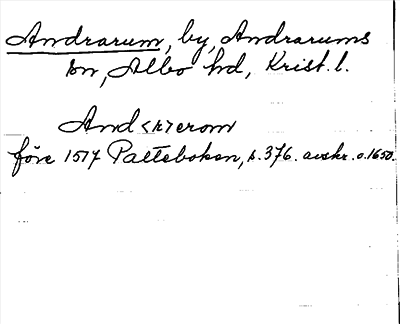 Andrarum, by, Andrarums
sn, Albo hd, Krist. l.
And<r>erom
före 1517 Palteboken, s. 376. avskr. o. 1650.